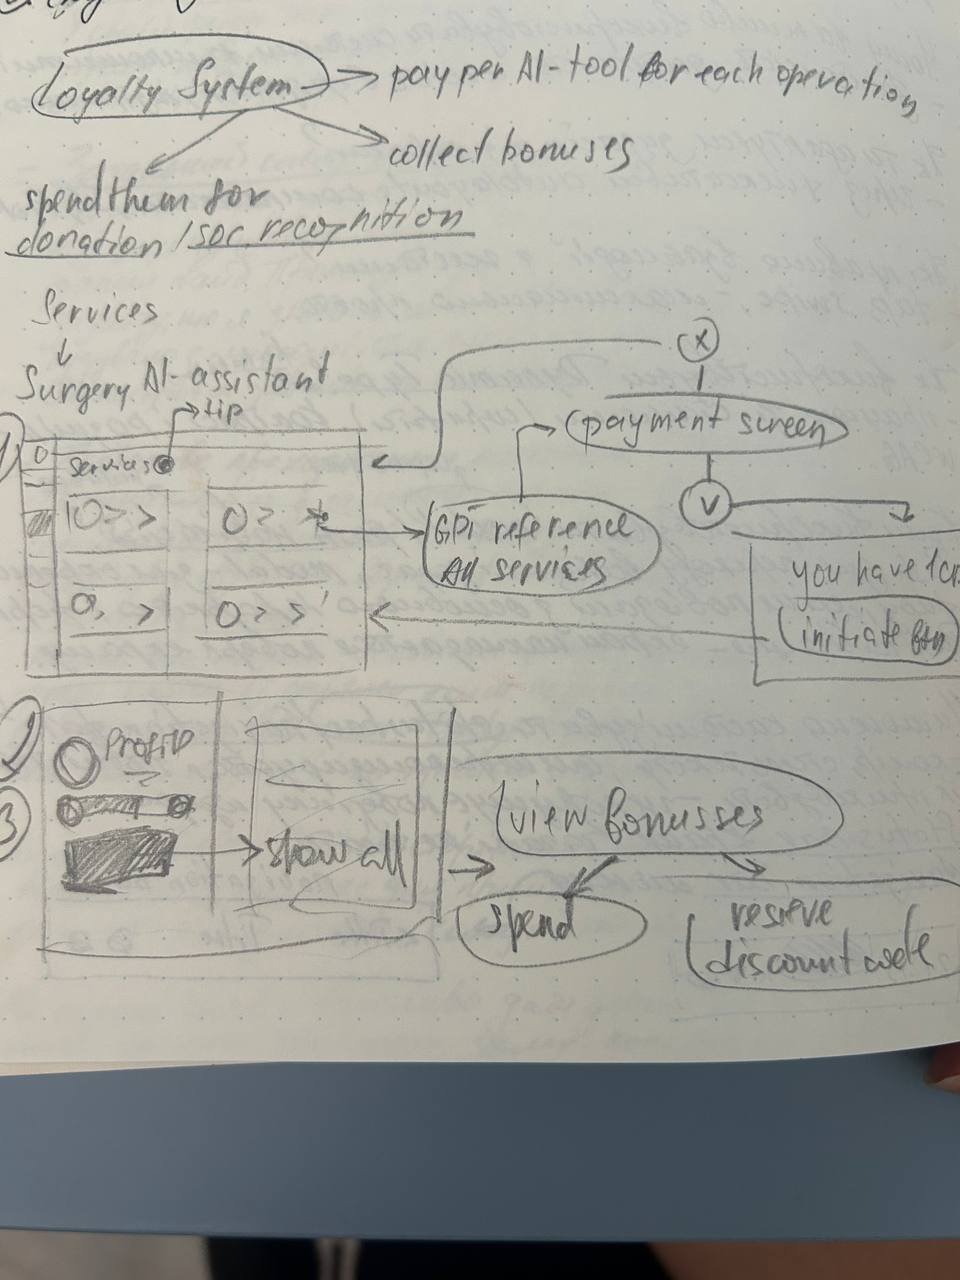 Loyalty System → pay per AI-tool for each operation
collect bonuses
spend them for
donation / soc. recognition
Services
↓
Surgery AI-assistant
tip
services
payment screen
X
V
GPT reference
All services
you have 1
initiate btn
1
2
3
Profile
show all
view bonusses
spend
resieve
discount code